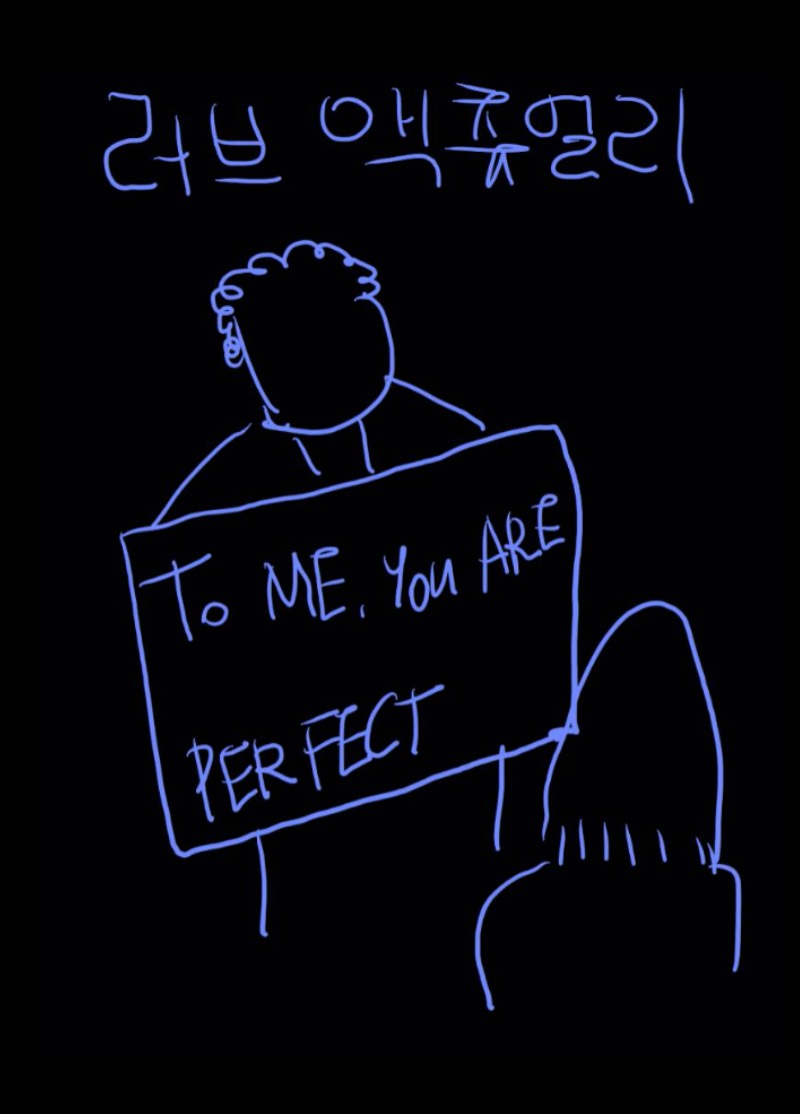 러브 액츄얼리
TO ME. YOU ARE
PERFECT